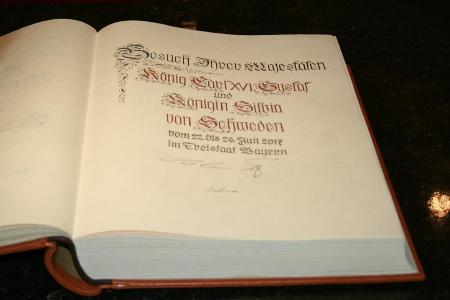 Besuch Ihrer Majestäten
König Carl XVI. Gustaf
und
Königin Silvia
von Schweden
vom 22. bis 26. Juli 2017
im Freistaat Bayern
Silvia